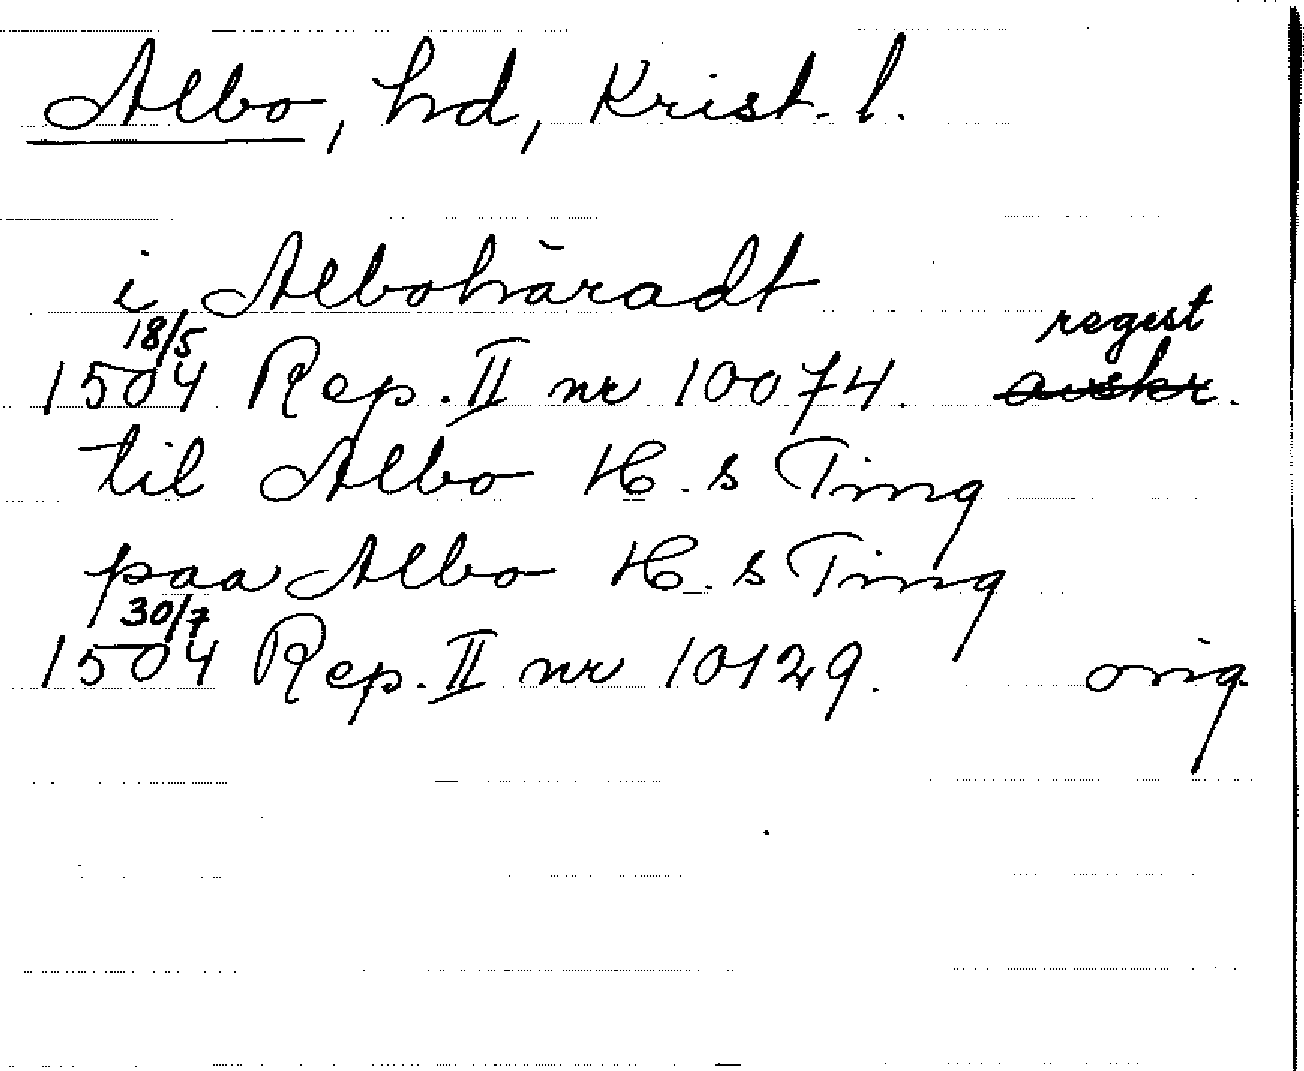 Albo, hd, Krist. l.
i Albohäradt
18/5 regist
1504 Rep. II nr 10074. avskr.
til Albo H. s Ting
paa Albo H. s Ting
30/7
1504 Rep. II nr 10129. orig.